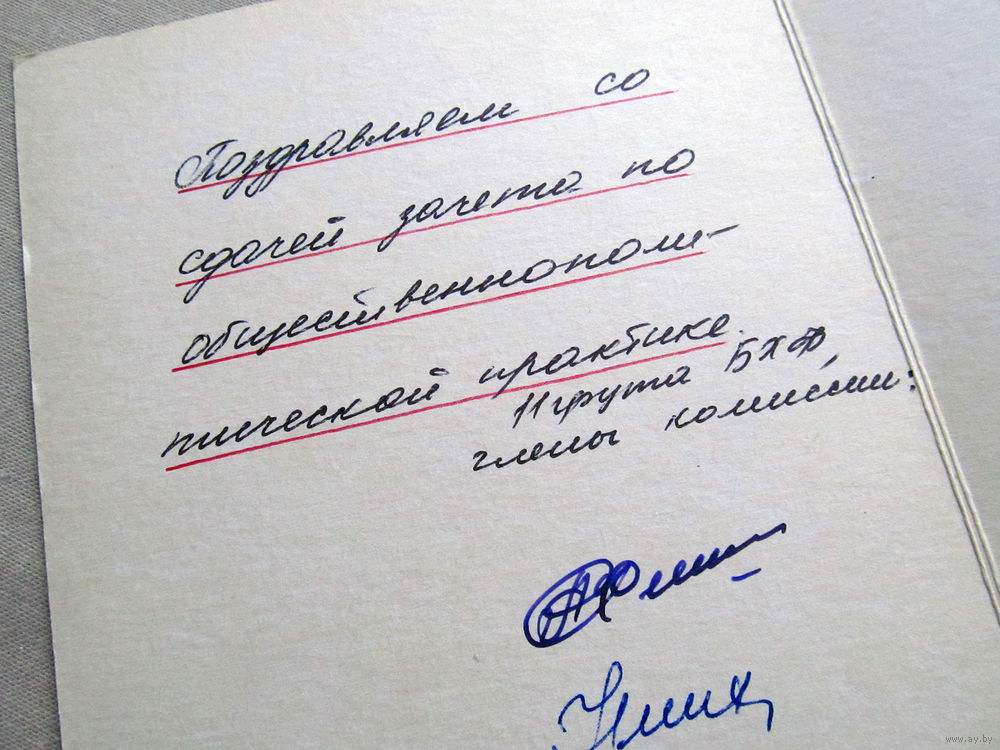 Поздравляем со
сдачей зачета по
общественнополи-
тической практике.
11 група БХФ,
члены комиссии:
www.ay.by